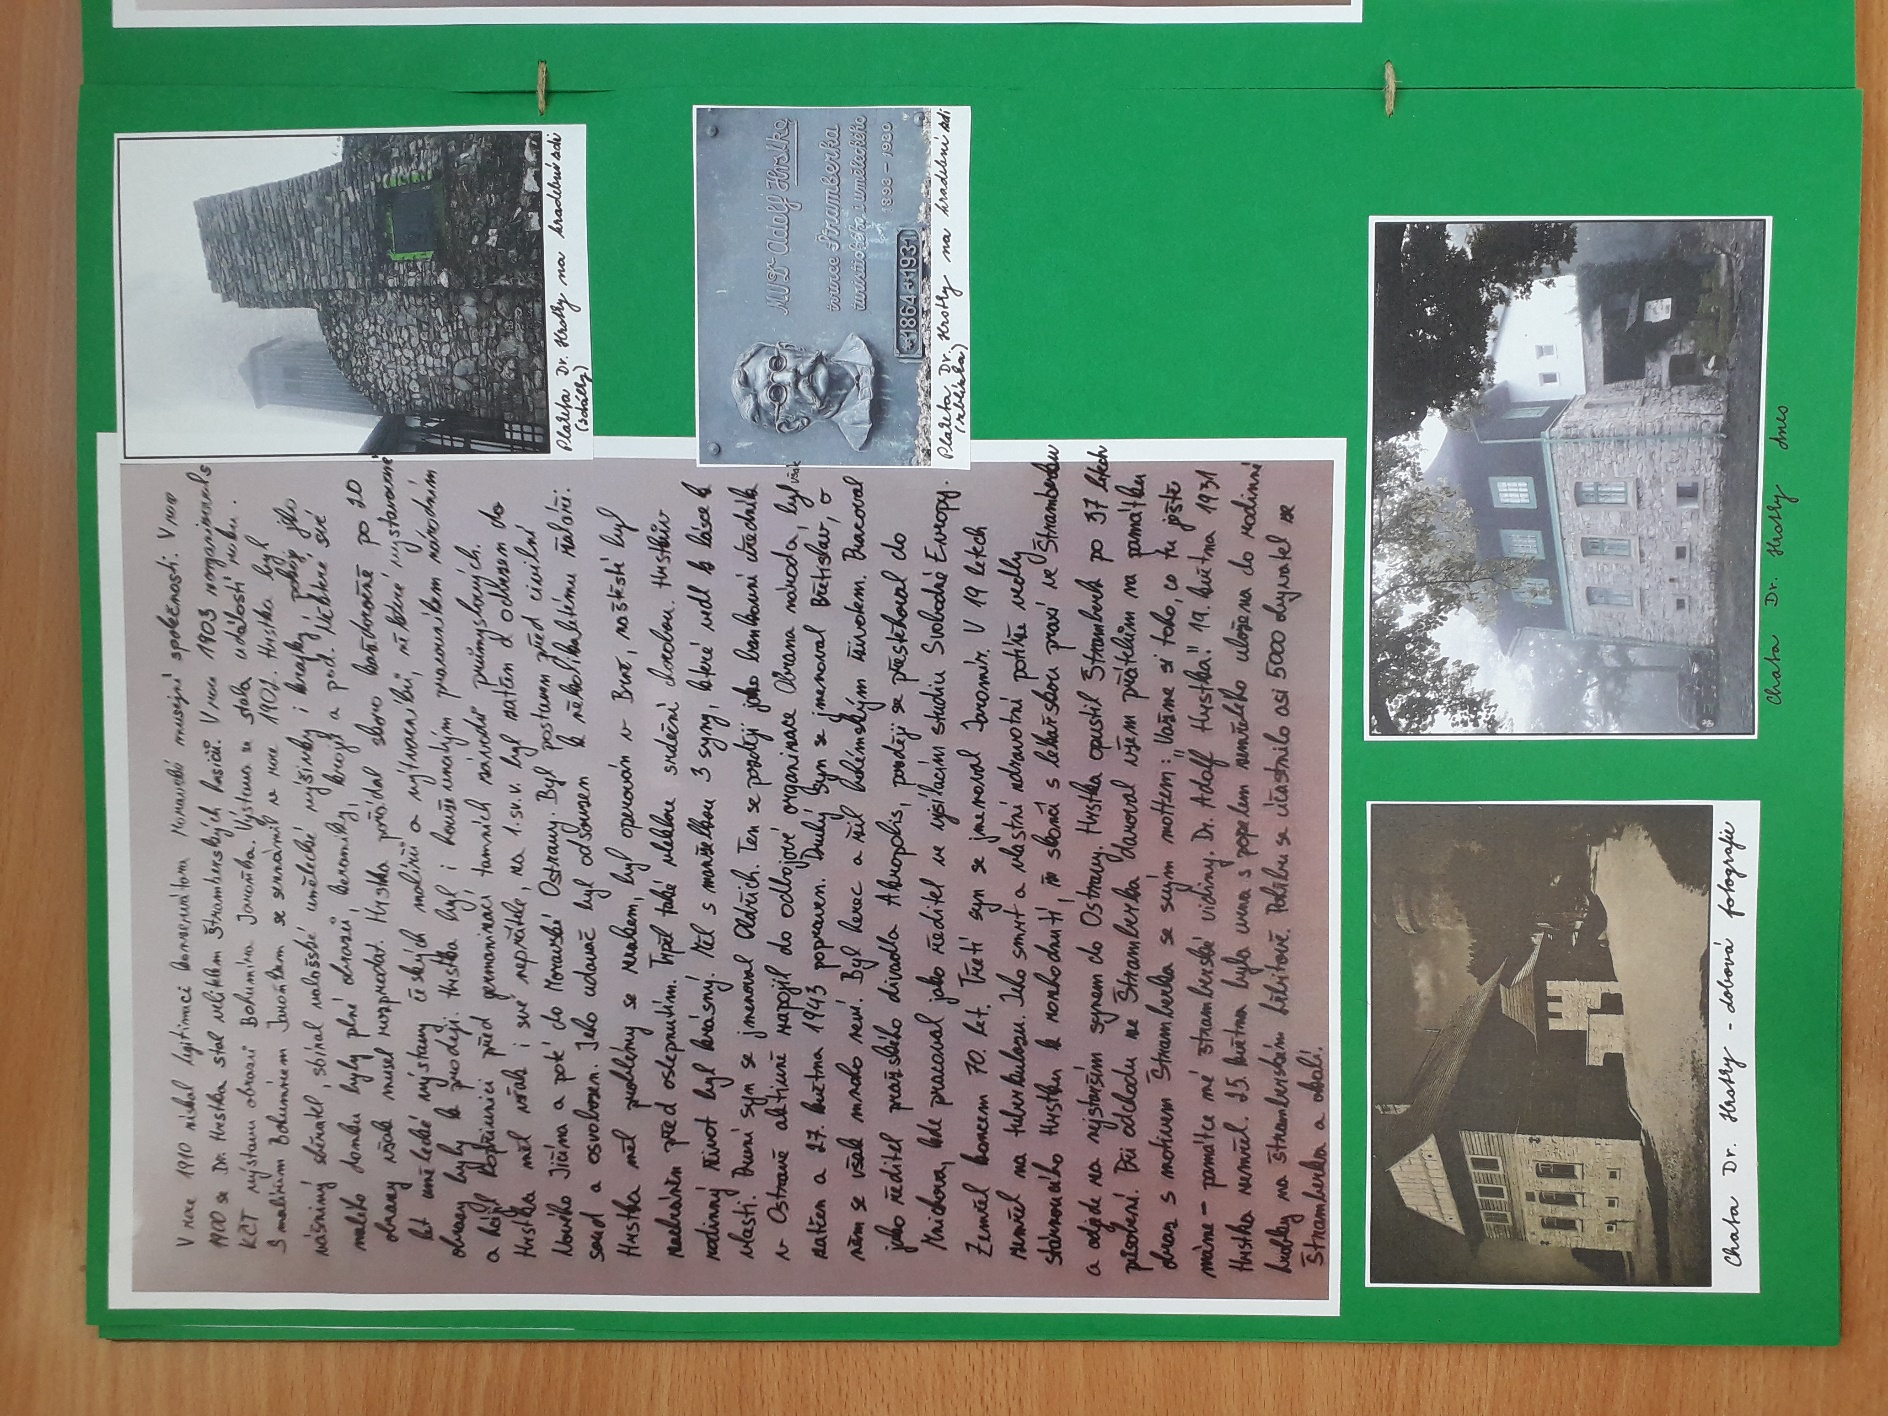 V roce 1910 získal legitimaci konzervátora Moravské musejní společnosti. V roce
1900 se Dr. Hrstka stal velitelem štramberských hasičů. V roce 1903 zorganizoval
KČT výstavu obrazů Bohumíra Jaroňka. Výstava se stala událostí roku.
S malířem Bohumírem Jaroňkem se seznámil v roce 1902. Hrstka byl
vášnivý sběratel, sbíral valašské umělecké výšivky i krajky, pokoje jeho
malého domku byly plné obrazů, keramiky, krojů a pod. Některé své
obrazy však musel rozprodat. Hrstka pořádal skoro každoročně po 20
let umělecké výstavy českých malířů a výtvarníků, některé vystavované
obrazy byly k prodeji. Hrstka byl i houževnatým pracovníkem národním
a hájil Kopřivnici před germanizací tamních závodů průmyslových.
Hrstka měl však i své nepřátele, za 1. sv. v. byl zatčen a odvezen do
Nového Jičína a poté do Moravské Ostravy. Byl postaven před civilní
soud a osvobozen. Jeho udavač byl odsouzen k několikaletému žaláři.
Hrstka měl problémy se zrakem, byl operován v Brně, naštěstí byl
zachráněn před oslepnutím. Trpěl také vleklou srdeční chorobou. Hrstkův
rodinný život byl krásný. Měl s manželkou 3 syny, které vedl k lásce k
vlasti. První syn se jmenoval Oldřich. Ten se později jako bankovní úředník
v Ostravě aktivně zapojil do odbojové organizace Obrana národa, byl však
zatčen a 27. května 1943 popraven. Druhý syn se jmenoval Břetislav, o
něm se však mnoho neví. Byl herec a žil bohémským životem. Pracoval
jako ředitel pražského divadla Akropolis, později se přestěhoval do
Mnichova, kde pracoval jako ředitel ve vysílacím studiu Svobodné Evropy.
Zemřel koncem 70. let. Třetí syn se jmenoval Jaromír. V 19 letech
zemřel na tuberkulozu. Jeho smrt a vlastní zdravotní potíže vedly
stárnoucího Hrstku k rozhodnutí, že skončí s lékařskou praxí ve Štramberku
a odjede za nejstarším synem do Ostravy. Hrstka opustil Štramberk po 37 letech
působení. Při odchodu ze Štramberka daroval všem přátelům na památku
obraz s motivem Štramberka se svým mottem: "Važme si toho, co tu ještě
máme - památce mé štramberské vidiny. Dr. Adolf Hrstka." 19. května 1931
Hrstka zemřel. 25. května byla urna s popelem zemřelého uložena do rodinné
hrobky na štramberském hřbitově. Pohřbu se účastnilo asi 5000 obyvatel ze
Štramberka a okolí.
Plaketa Dr. Hrstky na hradební zdi
(zdálky)
MUDr Adolf Hrstka
tvůrce Štramberka
turistického a uměleckého
1893 - 1930
*1864 +1931
Plaketa Dr. Hrstky na hradební zdi
(zblízka)
Chata Dr. Hrstky - dobová fotografie
Chata Dr. Hrstky dnes